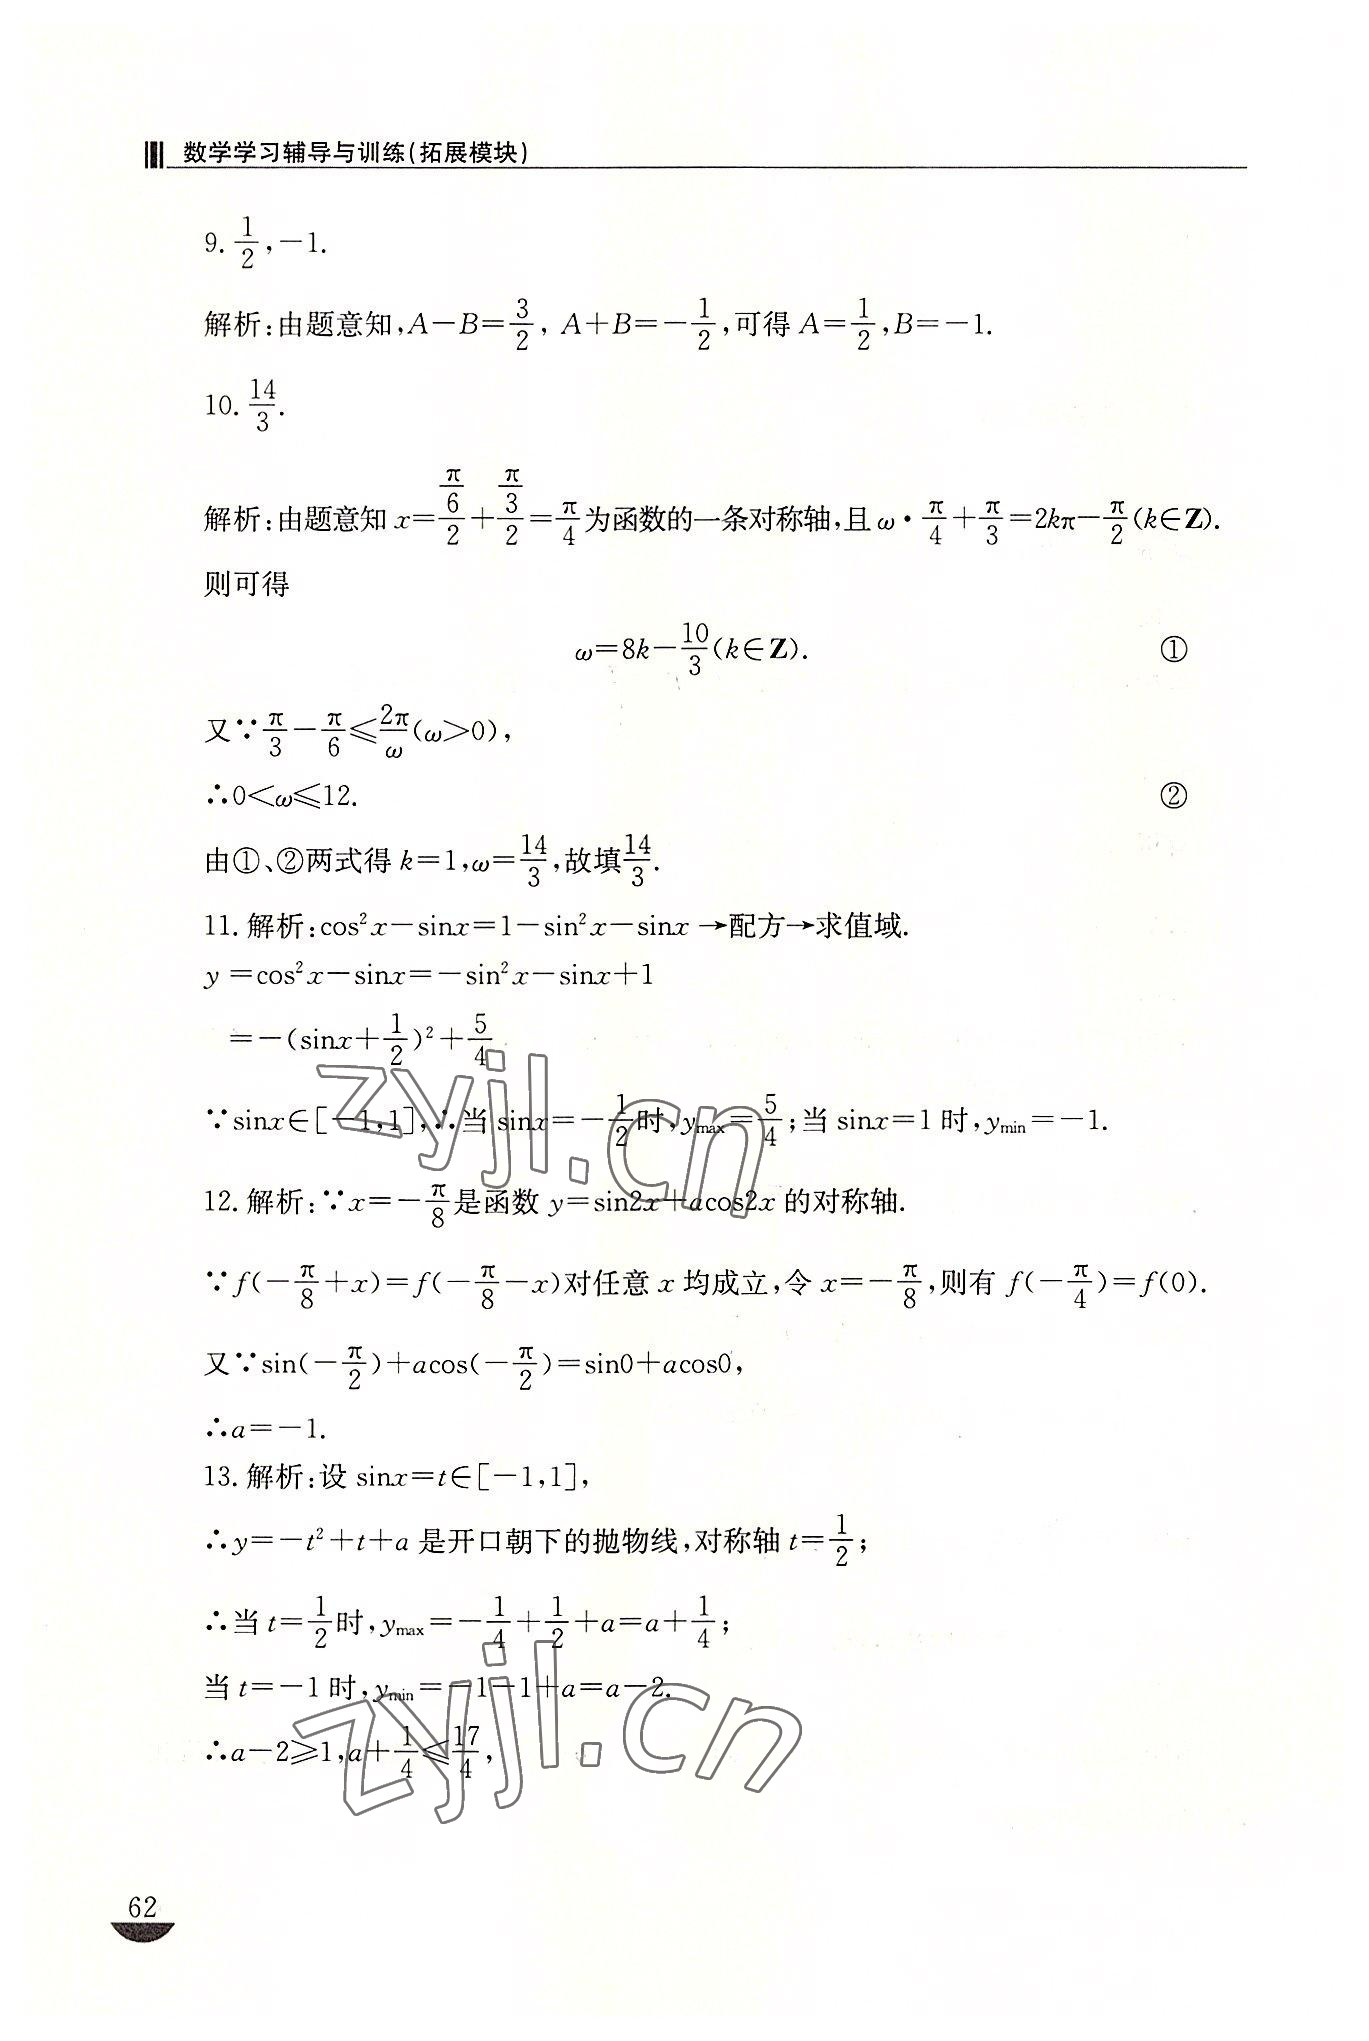 数学学习辅导与训练(拓展模块)
9. 1/2, -1.
解析:由题意知,A-B=3/2, A+B=-1/2,可得 A=1/2,B=-1.
10. 14/3.
解析:由题意知 x=(π/6)/2+(π/3)/2=π/4为函数的一条对称轴,且 ω·π/4+π/3=2kπ-π/2(k∈Z).
则可得
ω=8k-10/3(k∈Z). ①
又∵π/3-π/6≤2π/ω(ω>0),
∴0<ω≤12. ②
由①、②两式得 k=1,ω=14/3,故填14/3.
11. 解析:cos²x-sinx=1-sin²x-sinx→配方→求值域.
y=cos²x-sinx=-sin²x-sinx+1
=-(sinx+1/2)²+5/4
∵sinx∈[-1,1],∴当 sinx=-1/2时,y_max=5/4;当 sinx=1 时,y_min=-1.
12. 解析:∵x=-π/8是函数 y=sin2x+acos2x 的对称轴.
∵f(-π/8+x)=f(-π/8-x)对任意 x 均成立,令 x=-π/8,则有 f(-π/4)=f(0).
又∵sin(-π/2)+acos(-π/2)=sin0+acos0,
∴a=-1.
13. 解析:设 sinx=t∈[-1,1],
∴y=-t²+t+a 是开口朝下的抛物线,对称轴 t=1/2;
∴当 t=1/2时,y_max=-1/4+1/2+a=a+1/4;
当 t=-1 时,y_min=-1-1+a=a-2.
∴a-2≥1,a+1/4≤17/4,
62
zyjl.cn
zyjl.cn